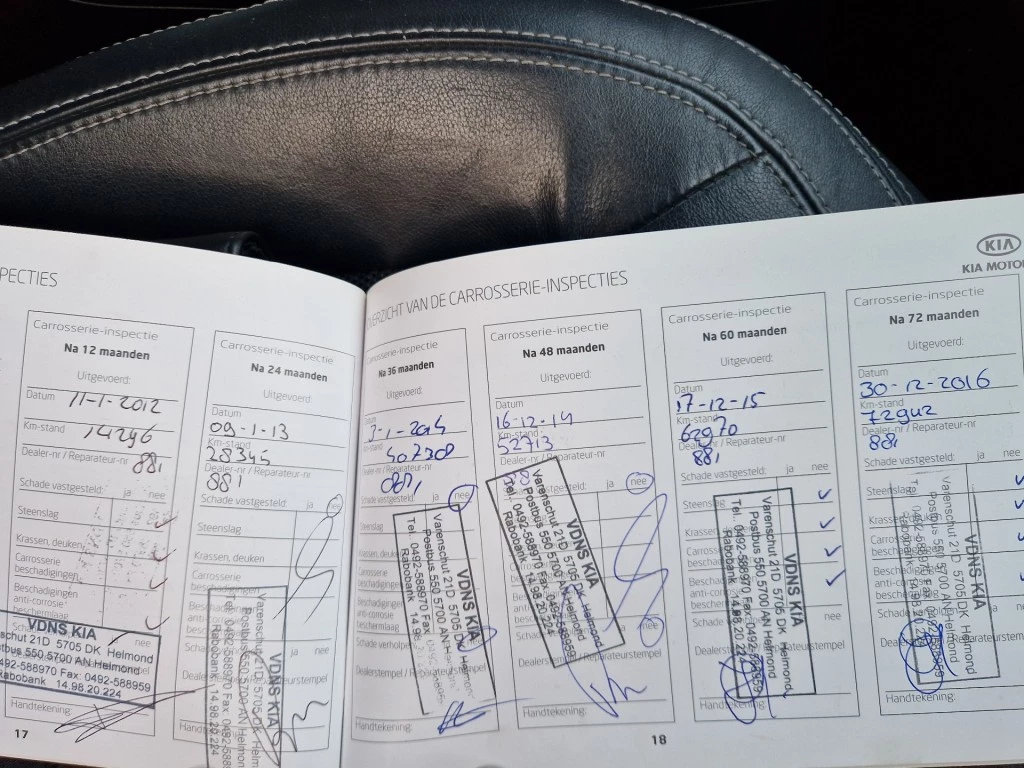 PECTIES
Carrosserie-inspectie
Na 12 maanden
Uitgevoerd:
Datum
11-1-2012
Km-stand
14296
Dealer-nr / Reparateur-nr
881
Schade vastgesteld: ja nee
Steenslag
Krassen, deuken
Carrosserie
beschadigingen
Beschadigingen
anti-corrosie
beschermlaag
nee
VDNS KIA
schut 21D 5705 DK Helmond
tbus 550 5700 AN Helmond
0492-588970 Fax: 0492-588959
Rabobank 14.98.20.224
Handtekening:
17
Carrosserie-inspectie
Na 24 maanden
Uitgevoerd:
Datum
09-1-13
Km-stand
28345
Dealer-nr / Reparateur-nr
881
Schade vastgesteld: ja nee
Steenslag
Krassen, deuken
Carrosserie
VDNS KIA
Varenschut 21D 5705 DK Helm
Postbus 550 5700 AN Helmon
Tel. 0492-588970 Fax 0492-588
Rabobank 14.98.20.224
Handtekening
OVERZICHT VAN DE CARROSSERIE-INSPECTIES
KIA
KIA MOTOR
Carrosserie-inspectie
Na 36 maanden
Uitgevoerd:
Km-stand
40730
Dealer-nr / Reparateur-nr
881
Schade vastgesteld: ja nee
Steenslag
Krassen, deuken
Carrosserie
beschadigingen
Beschadigingen
anti-corrosie
beschermlaag
Schade verholpen
VDNS KIA
Varenschut 21D 5705 DK Helmond
Postbus 550 5700 AN Helmond
Tel. 0492-588970 Fax
Rabobank 14.98
Handtekening:
Carrosserie-inspectie
Na 48 maanden
Uitgevoerd:
Datum
16-12-14
Km-stand
52713
Dealer-nr / Reparateur-nr
881
ja nee
VDNS KIA
Varenschut 21D 5705 DK Helmond
Postbus 550 5700 AN Helmond
Tel. 0492-588970 Fax: 0492-588959
Rabobank 14.98.20.224
Dealerstempel / Reparateurstempel
Handtekening:
18
Carrosserie-inspectie
Na 60 maanden
Uitgevoerd:
Datum
17-12-15
Km-stand
62970
Dealer-nr / Reparateur-nr
881
Schade vastgesteld: ja nee
Steenslag
Krassen, deuken
Carrosserie
beschadigingen
Beschadigingen
anti-corrosie
beschermlaag
VDNS KIA
Varenschut 21D 5705 DK Helmond
Postbus 550 5700 AN Helmond
Tel. 0492-588970 Fax: 0492-588959
Rabobank 14.98.20.224
Handtekening:
Carrosserie-inspectie
Na 72 maanden
Uitgevoerd:
Datum
30-12-2016
Km-stand
72942
Dealer-nr / Reparateur-nr
881
Schade vastgesteld: ja nee
Steenslag
Krassen, deuken
Carrosserie
Beschadigingen
anti-corrosie
beschermlaag
VDNS KIA
Varenschut 21D 5705 DK Helmond
Postbus 550 5700 AN Helmond
Reparateurstempel
Handtekening: